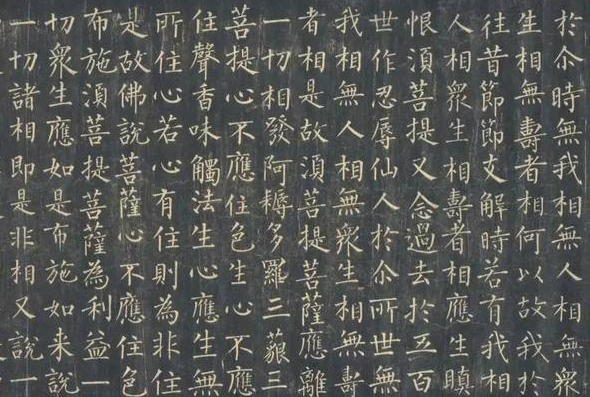 於尒時無我相無人相無衆
生相無壽者相何以故我於
往昔節節支解時若有我相
人相衆生相壽者相應生瞋
恨湏菩提又念過去於五百
世作忍辱仙人於尒所世無
我相無人相無衆生相無壽
者相是故湏菩提菩薩應離
一切相發阿耨多羅三藐三
菩提心不應住色生心不應
住聲香味觸法生心應生無
所住心若心有住則為非住
是故佛說菩薩心不應住色
布施湏菩提菩薩為利益一
切衆生應如是布施如来說
一切諸相即是非相又說一